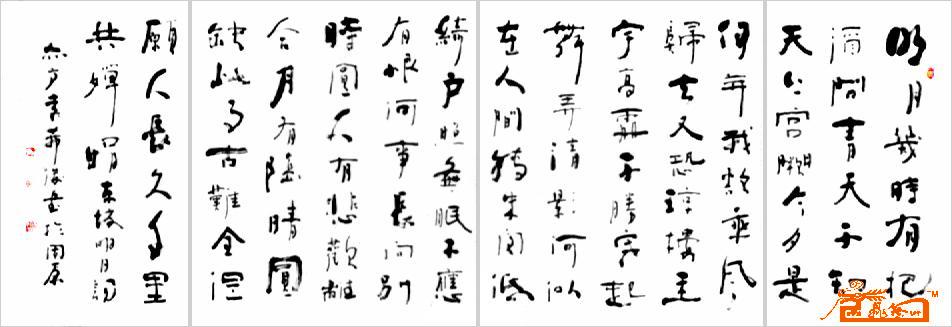 明月幾時有把
酒問青天不知
天上宫闕今夕是
何年我欲乘風
歸去又恐瓊樓玉
宇高處不勝寒起
舞弄清影何似
在人間轉朱閣低
綺户照無眠不應
有恨何事長向別
時圓人有悲歡離
合月有陰晴圓
缺此事古難全但
願人長久千里
共嬋娟東坡明月詞
書於周原